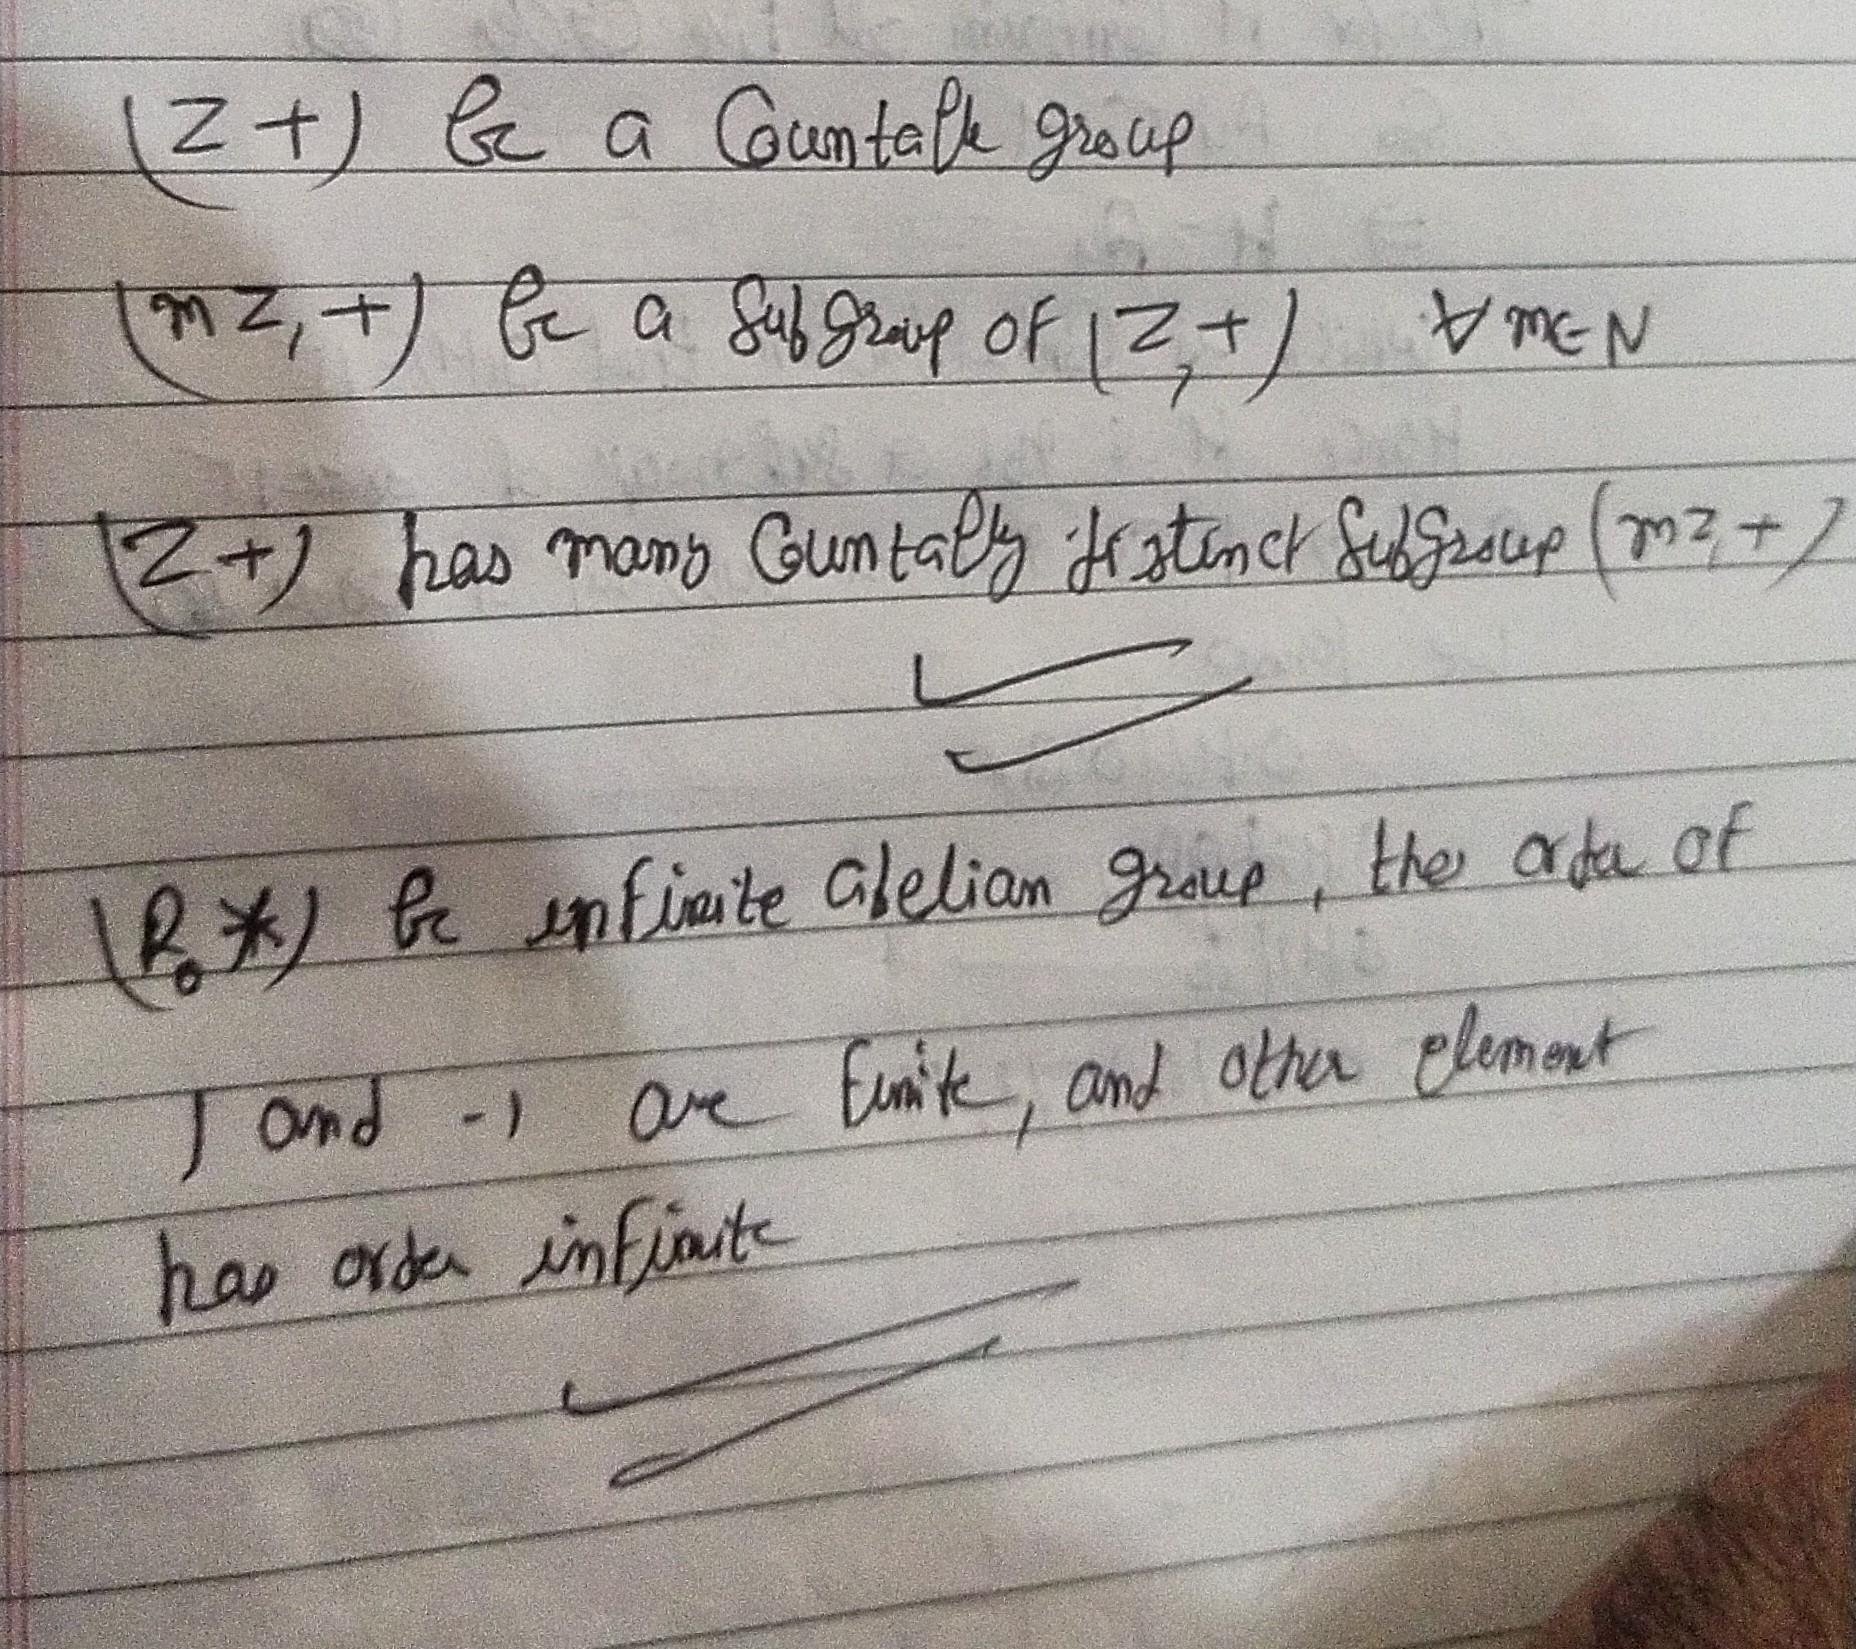 (Z +) be a Countable group
(mZ, +) be a Subgroup of (Z, +) ∀ m ∈ N
(Z +) has many Countably distinct Subgroup (mZ, +)
(R₀ *) be infinite abelian group, the order of
1 and -1 are finite, and other element
has order infinite